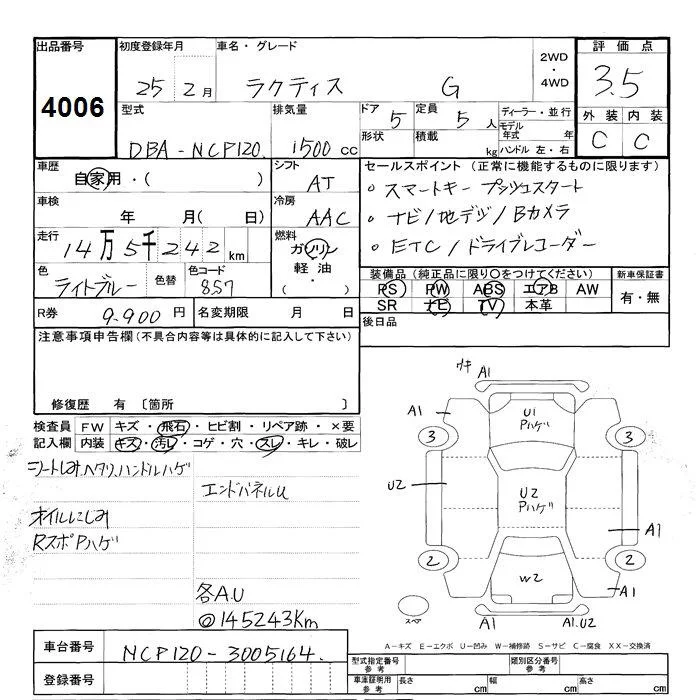 出品番号
4006
初度登録年月
25 2月
車名・グレード
ラクティス G
2WD
・
4WD
評価点
3.5
型式
DBA-NCP120
排気量
1500cc
ドア 5
形状
定員 5人
積載 kg
ディーラー・並行
モデル年式 年
ハンドル 左・右
外装 内装
C C
車歴
自家用・( )
シフト
AT
車検
年 月( 日)
冷房
AAC
走行
14万5千242km
燃料
ガソリン
軽油
( ・ )
色
ライトブルー
色替
色コード
8S7
R券 9.900円
名変期限 月 日
セールスポイント(正常に機能するものに限る)
。スマートキー プッシュスタート
。ナビ/地デジ/Bカメラ
。ETC/ドライブレコーダー
装備品(純正品に限り○をつけてください)
PS PW ABS エアB AW
SR ナビ TV 本革
新車保証書
有・無
後日品
注意事項申告欄(不具合内容等は具体的に記入して下さい)
修復歴 有 〔箇所
検査員記入欄
FW キズ・飛石・ヒビ割・リペア跡・×要
内装 キズ・汚レ・コゲ・穴・スレ・キレ・破レ
シートしみ、ヘタリ、ハンドルハゲ
エンドパネルU
オイルにじみ
RスポPハゲ
各A.U
@145243Km
ウキ A1
A1
U1
Pハゲ
3 3
U2
U2
Pハゲ
A1
2 2
W2
A1
スペア
A1 A1.U2
A-キズ E-エクボ U-凹み W-補修跡 S-サビ C-腐食 XX-交換済
車台番号
NCP120-3005164
登録番号
型式指定番号
参考
類別区分番号
参考
車庫証明用
参考
長さ cm 幅 cm 高さ cm